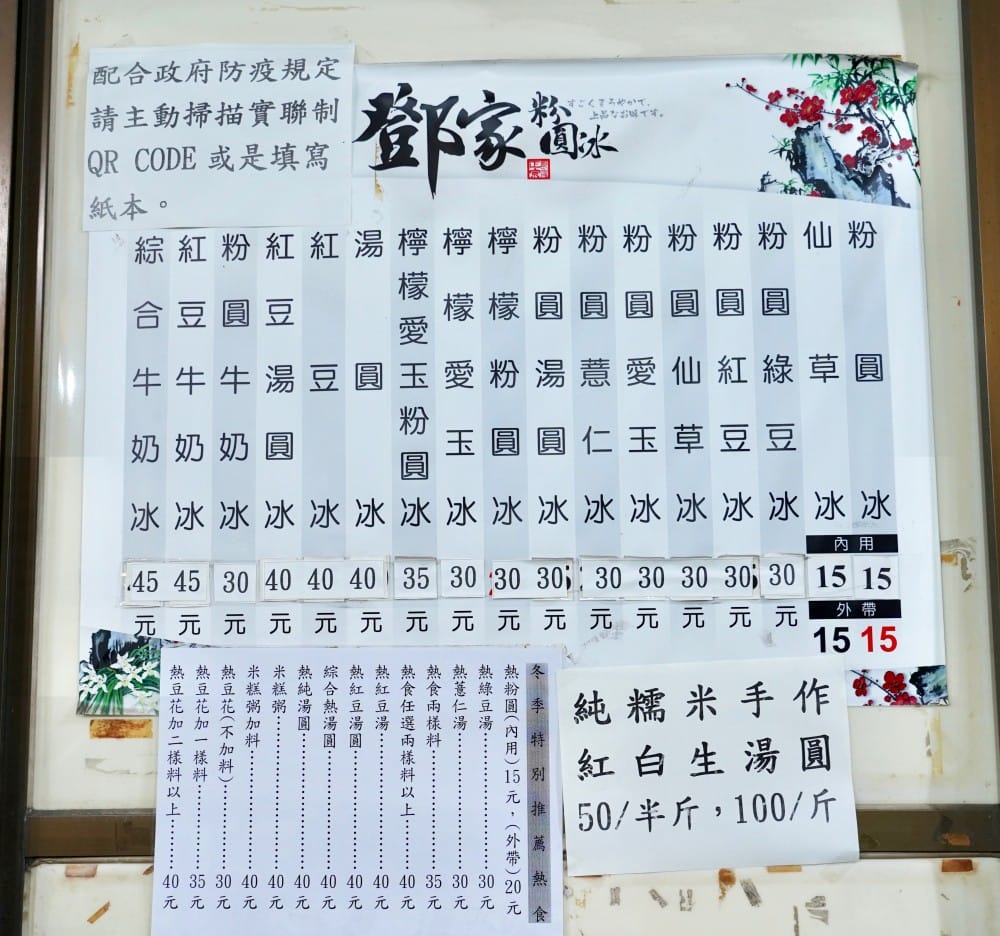 配合政府防疫規定
請主動掃描實聯制
QR CODE 或是填寫
紙本。
鄧家粉圓冰
すごくまろやかで、
上品なお味です。
內用
外帶
粉圓冰 15 15
仙草冰 15 15元
粉圓綠豆冰 30元
粉圓紅豆冰 30元
粉圓仙草冰 30元
粉圓愛玉冰 30元
粉圓薏仁冰 30元
粉圓湯圓冰 30元
檸檬粉圓冰 30元
檸檬愛玉冰 30元
檸檬愛玉粉圓冰 35元
湯圓冰 40元
紅豆冰 40元
紅豆湯圓冰 40元
粉圓牛奶冰 30元
紅豆牛奶冰 45元
綜合牛奶冰 45元
冬季特別推薦熱食
熱粉圓(內用)15元,(外帶)20元
熱綠豆湯……………30元
熱薏仁湯……………30元
熱食兩樣料……………35元
熱食任選兩樣料以上……40元
熱紅豆湯……………40元
熱紅豆湯圓……………40元
綜合熱湯圓……………40元
熱純湯圓……………40元
米糕粥……………40元
米糕粥加料……………40元
熱豆花(不加料)…………30元
熱豆花加一樣料…………35元
熱豆花加二樣料以上……40元
純糯米手作
紅白生湯圓
50/半斤，100/斤